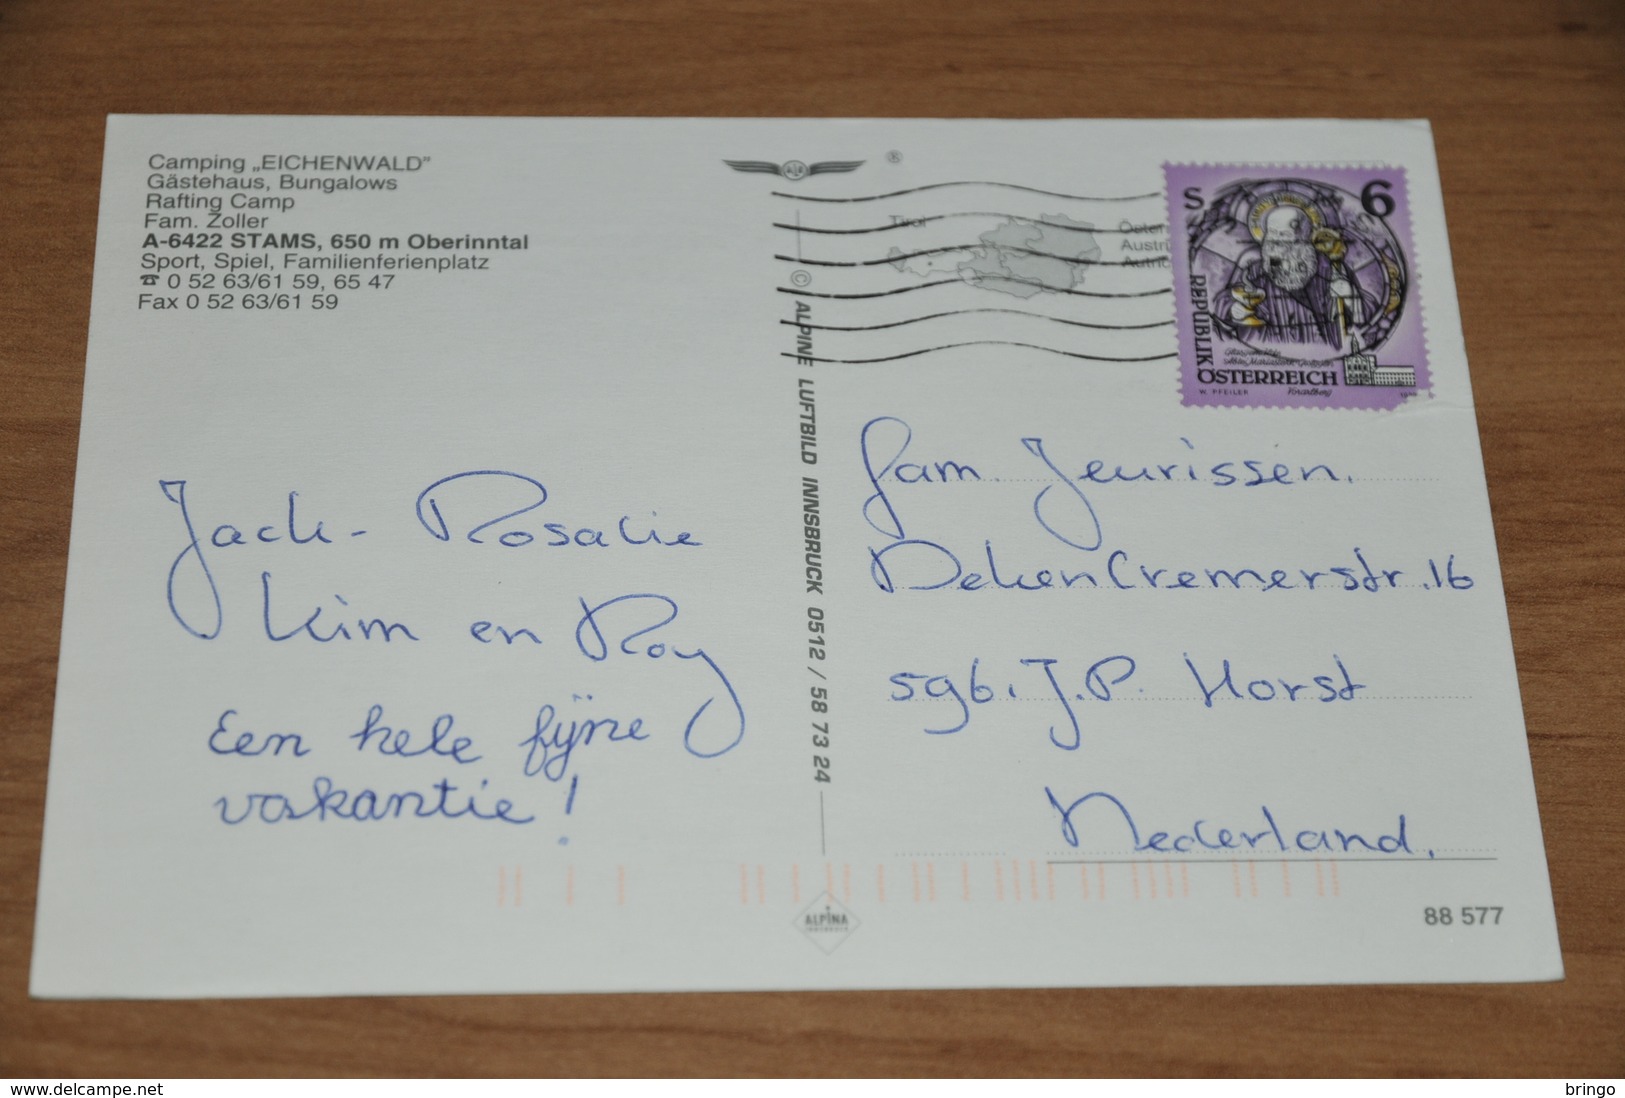 Camping „EICHENWALD"
Gästehaus, Bungalows
Rafting Camp
Fam. Zoller
A-6422 STAMS, 650 m Oberinntal
Sport, Spiel, Familienferienplatz
☎ 0 52 63/61 59, 65 47
Fax 0 52 63/61 59
®
Tirol
S 6
REPUBLIK
ÖSTERREICH
W. PFEILER
Vorarlberg
© ALPINE LUFTBILD INNSBRUCK 0512 / 58 73 24
Jack - Rosalie
Kim en Roy
Een hele fijne
vakantie!
Fam. Jeurissen.
Deken Cremerstr. 16
5961 J.P. Horst
Nederland.
ALPINA
INNSBRUCK
88 577
https://www.delcampe.net
bringo